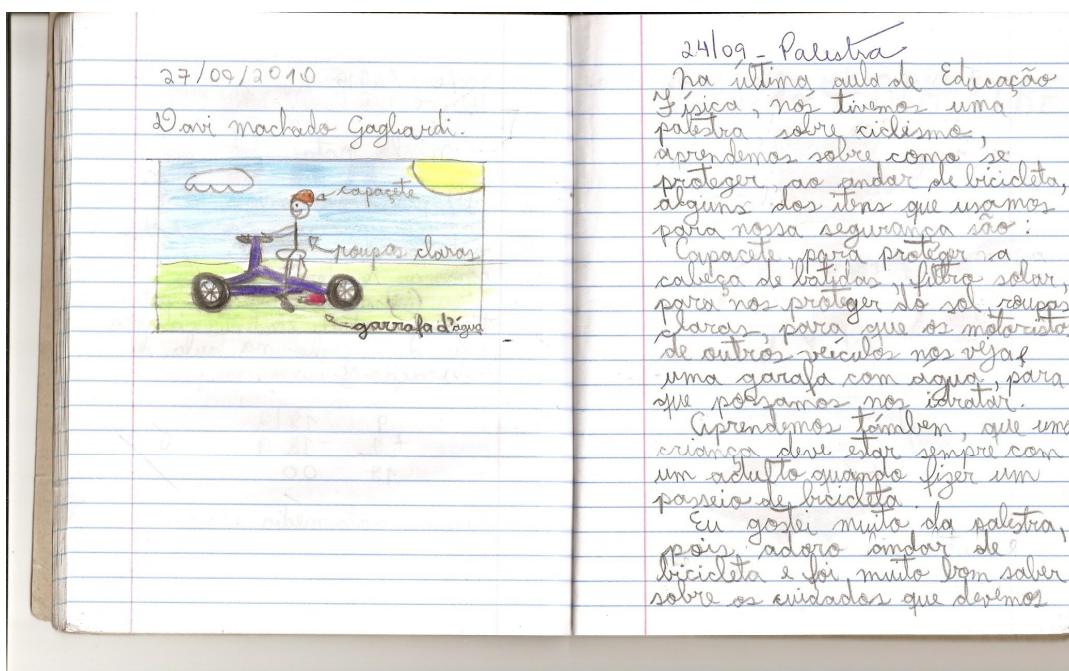 27/09/2010
Davi machado Gagliardi.
capaçete
roupas claras
garrafa d'água
24/09 - Palestra
Na última aula de Educação
Física, nós tivemos uma
palestra sobre ciclismo,
aprendemos sobre como se
proteger, ao andar de bicicleta,
alguns dos itens que usamos
para nossa segurança são:
Capacete, para proteger a
cabeça de batidas, filtro solar,
para nos proteger do sol roupas
claras, para que os motorista
de outros veículos nos veja e
uma garafa com água, para
que possamos nos idratar.
Aprendemos támbem, que uma
criança deve estar sempre com
um adulto quando fizer um
passeio de bicicleta
Eu gostei muito da palestra,
pois, adoro andar de
bicicleta e foi muito bom saber
sobre os cuidados que devemos